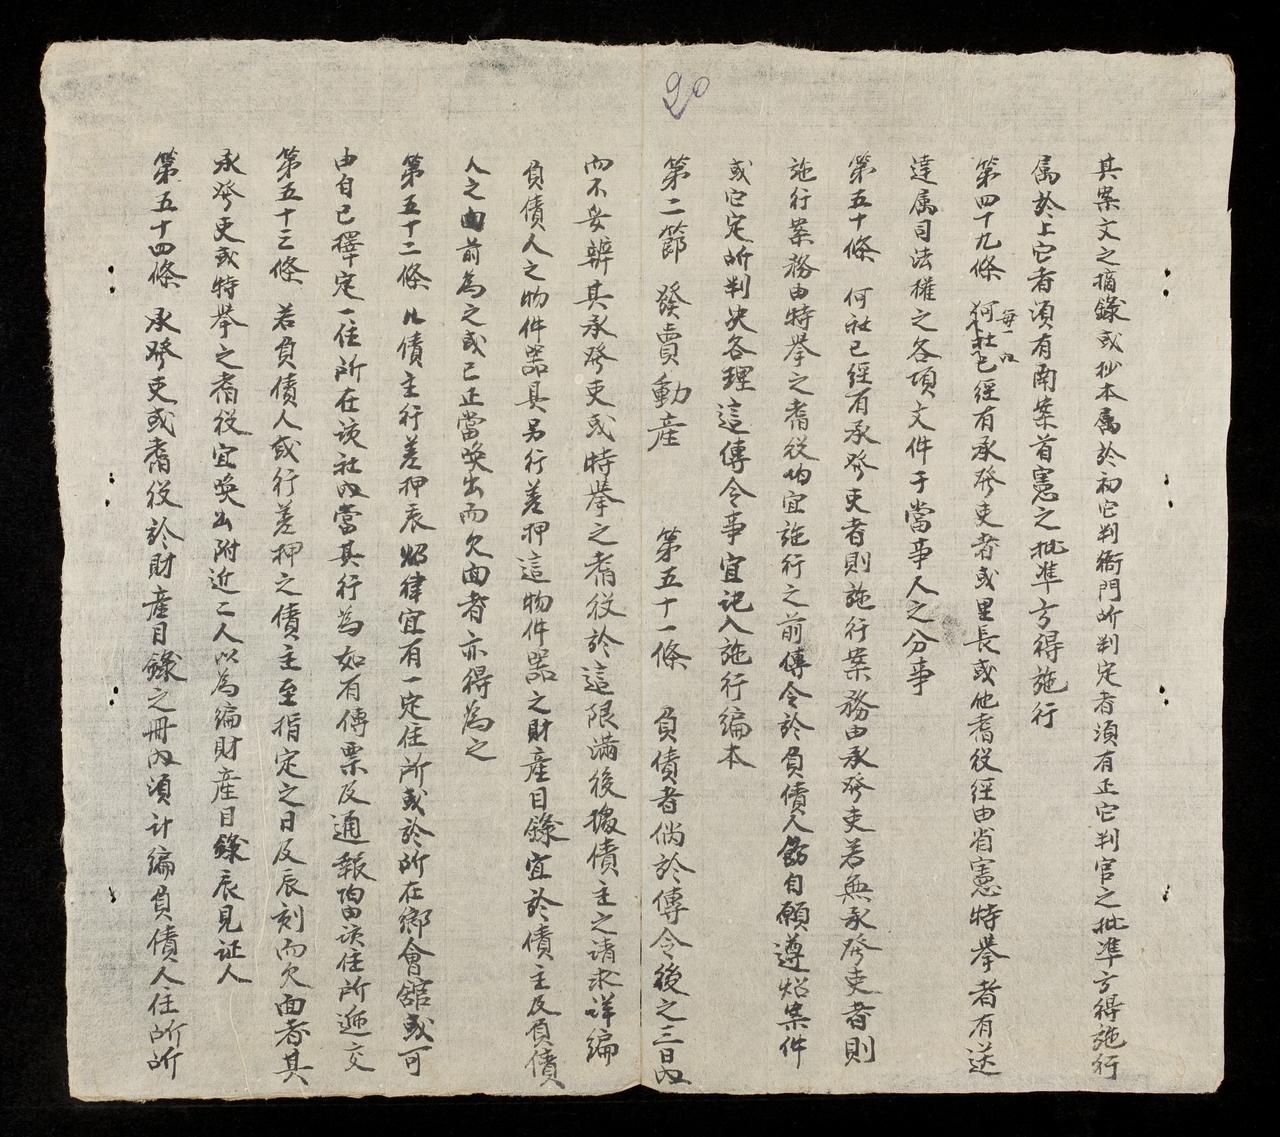 20
其案文之摘錄或抄本属於初它判衙門所判定者須有正它判官之批準方得施行
属於上它者須有南案首憲之批準方得施行
第四十九條 每一以何社已經有承發吏者或里長或他耆役經由省憲特举者有送
達属司法權之各項文件于當事人之分事
第五十條 何社已經有承發吏者則施行案務由承發吏若無承發吏者則
施行案務由特举之耆役均宜施行之前傳令於負債人飭自願遵炤案件
或它定所判决各理這傳令事宜记入施行编本
第二節 發賣動産 第五十一條 負債者倘於傳令後之三日内
而不妥辨其承發吏或時举之耆役於這限满後據債主之请求详编
負債人之物件器具另行差押這物件器之財産目錄宜於債主及負債
人之面前為之或已正當唤出而欠面者亦得為之
第五十二條 凡債主行差押辰炤律宜有一定住所或於所在鄉會舘或可
由自己擇定一住所在该社内當其行為如有傳票及通報均由该住所遞交
第五十三條 若負債人或行差押之債主至指定之日及辰刻而欠面者其
承發吏或特举之耆役宜唤出附近二人以為编財産目錄辰見证人
第五十四條 承發吏或耆役於財産目錄之冊内須计编負債人住所所